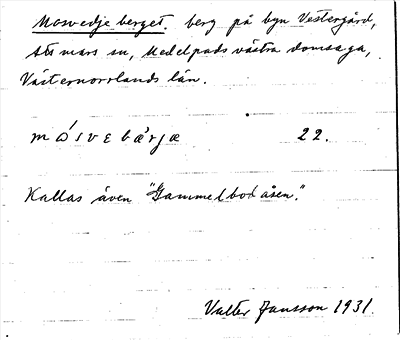 Mosvedjeberget. berg på byn Västergård,
Attmars sn, Medelpads västra domsaga,
Västernorrlands län.
mósvebärjæ 22.
Kallas även "Gammelbodåsen."
Valter Jansson 1931.